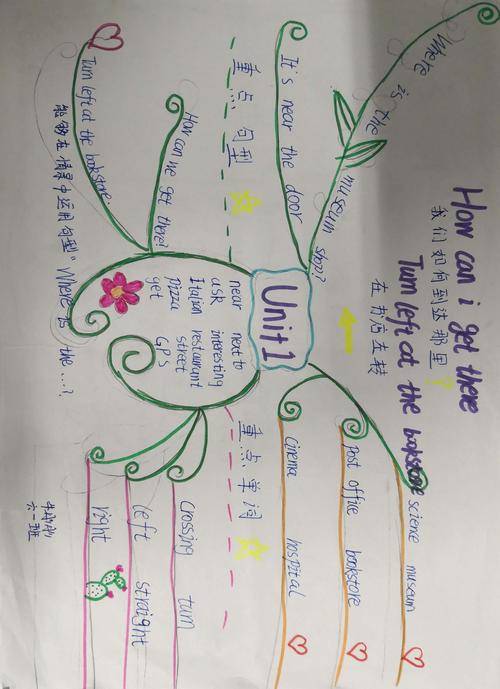 How can i get there
我们如何到达那里?
Turn left at the bookstore
在书店左转
Unit 1
Where is the museum shop?
It's near the door
重点句型
How can we get there?
Turn left at the bookstore
能够在情景中运用句型"Where is the...?
near next to
ask interesting
Italian restaurant
pizza street
get GPS
重点单词
science museum
post office bookstore
cinema hospital
crossing turn
left straight
right
六一班